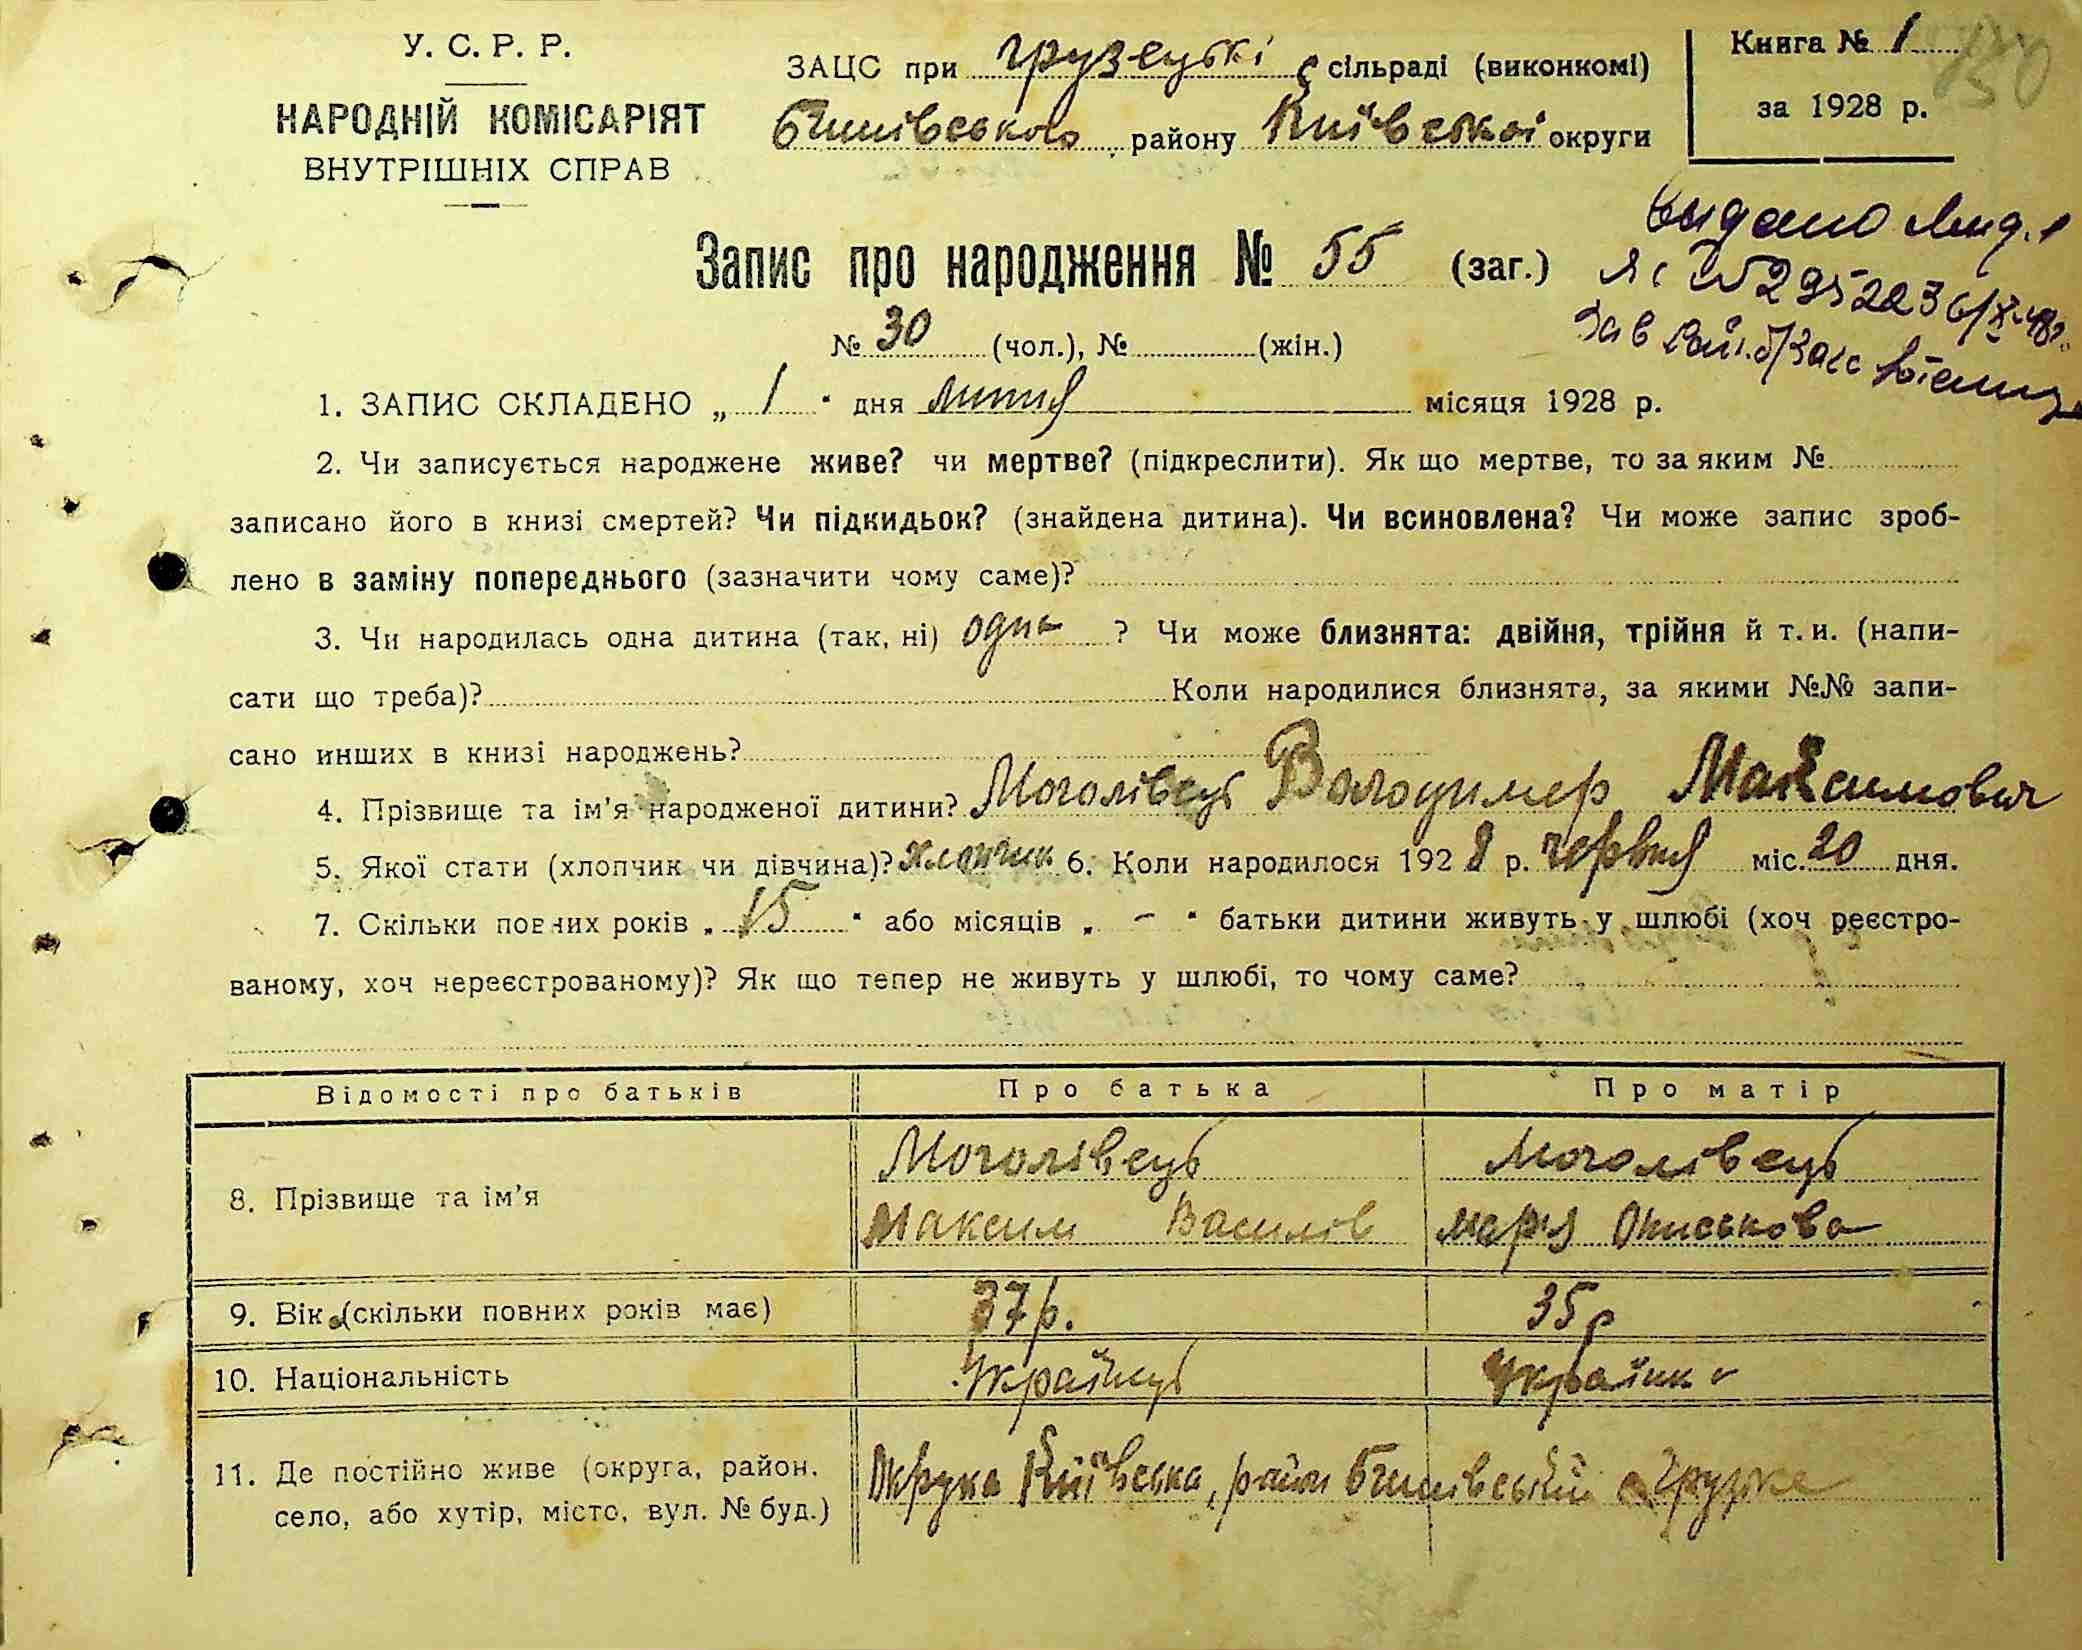 У. С. Р. Р.
НАРОДНІЙ КОМІСАРІЯТ
ВНУТРІШНІХ СПРАВ
ЗАЦС при Грузецькі й сільраді (виконкомі)
Бишівського району Київської округи
Книга № 1
за 1928 р.
Запис про народження № 55 (заг.)
№ 30 (чол.), № (жін.)
Видано
295223 6/X-48
Зав
1. ЗАПИС СКЛАДЕНО „ 1 “ дня липня місяця 1928 р.
2. Чи записується народжене живе? чи мертве? (підкреслити). Як що мертве, то за яким №
записано його в книзі смертей? Чи підкидьок? (знайдена дитина). Чи всиновлена? Чи може запис зроб-
лено в заміну попереднього (зазначити чому саме)?
3. Чи народилась одна дитина (так, ні) одна ? Чи може близнята: двійня, трійня й т. и. (напи-
сати що треба)? Коли народилися близнята, за якими №№ запи-
сано инших в книзі народжень?
4. Прізвище та ім’я народженої дитини? Моголівець Володимер Максимович
5. Якої стати (хлопчик чи дівчина)? хлопчик 6. Коли народилося 1928 р. червня міс. 20 дня.
7. Скільки повних років „ 15 “ або місяців „ - “ батьки дитини живуть у шлюбі (хоч реєстро-
ваному, хоч нереєстрованому)? Як що тепер не живуть у шлюбі, то чому саме?
Відомості про батьків Про батька Про матір
8. Прізвище та ім’я Моголівець Моголівець
Максим Василів Марія Ониськова
9. Вік (скільки повних років має) 37 р. 35 р
10. Національність Українець Українка
11. Де постійно живе (округа, район, село, або хутір, місто, вул. № буд.) Округа Київська, район Бишівський с Грузьке